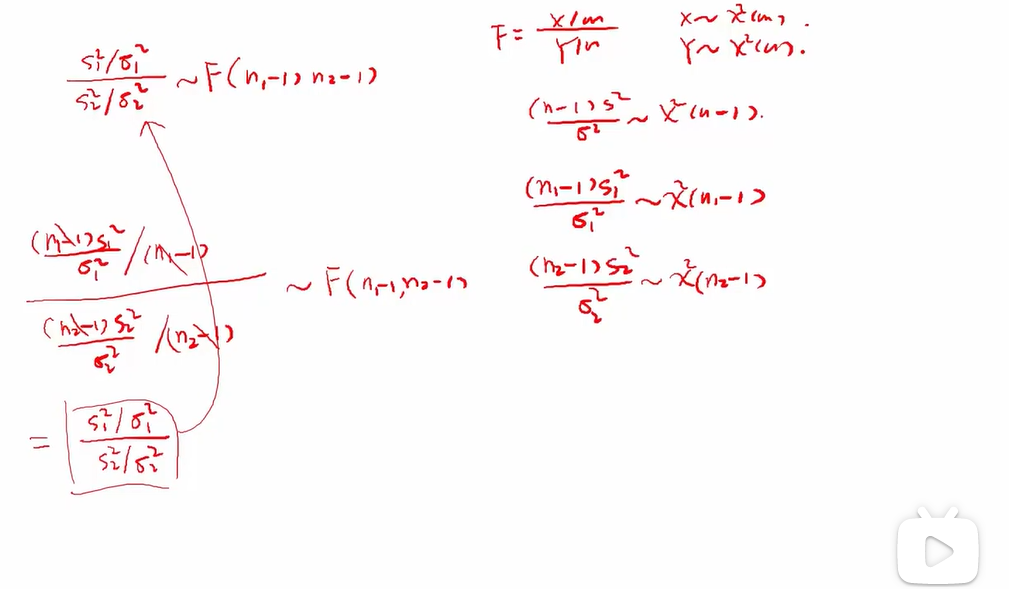 S₁²/σ₁² / S₂²/σ₂² ~ F(n₁-1, n₂-1)
(n₁-1)S₁²/σ₁² /(n₁-1)
~ F(n₁-1, n₂-1)
(n₂-1)S₂²/σ₂² /(n₂-1)
= S₁²/σ₁² / S₂²/σ₂²
F = X/m / Y/n X~χ²(m).
Y~χ²(n).
(n-1)S²/σ² ~ χ²(n-1).
(n₁-1)S₁²/σ₁² ~ χ²(n₁-1)
(n₂-1)S₂²/σ₂² ~ χ²(n₂-1)